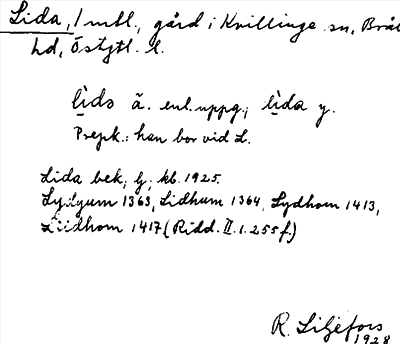 Lida, 1 mtl., gård i Kvillinge sn, Bråb
hd, Östgtl. l.
lìdo ä. enl. uppg; lìda y.
Prepk.: han bor vid L.
Lida bek; lj; kb. 1925.
Lydgum 1363, Lidhum 1364, Lydhom 1413,
Liidhom 1417 (Ridd. II. 1. 255 f.)
R. Liljefors
1928